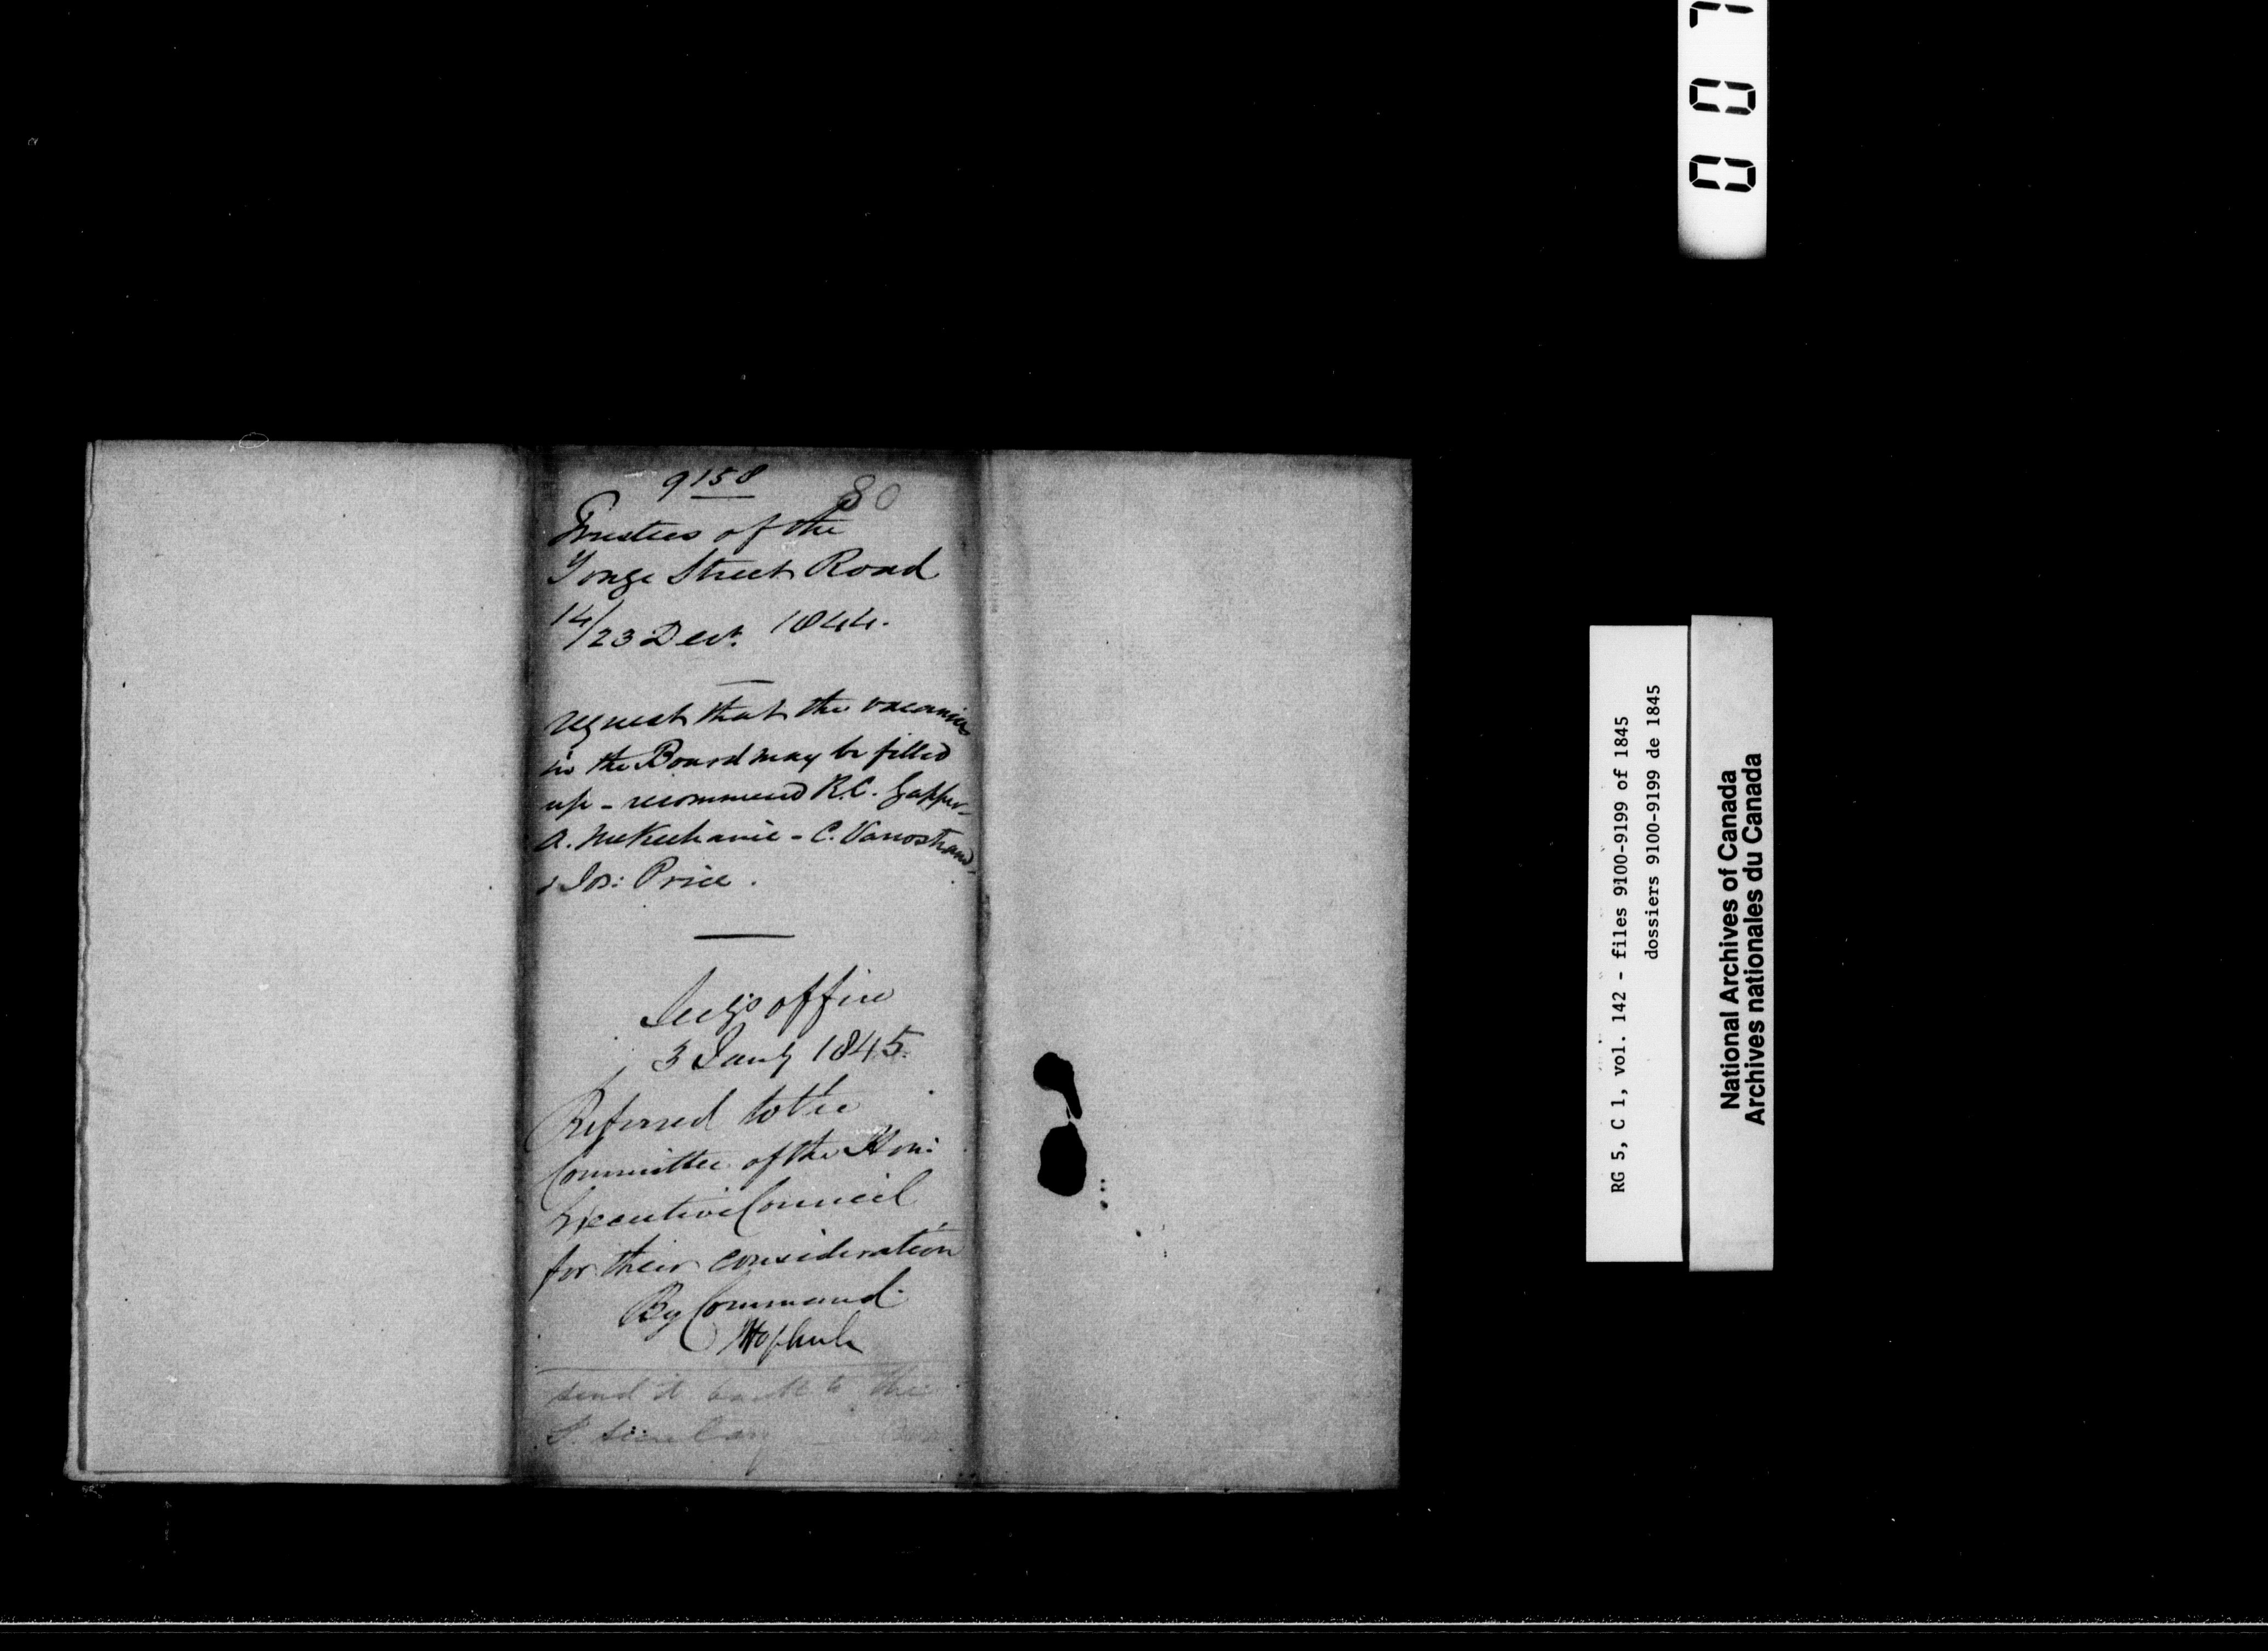 9158
80
Trustees of the
Yonge Street Road
14/23 Decr. 1844.
request that the vacancies
in the Board may be filled
up - recommend R.C. Gapper -
A. McKechanie - C. Vanostrand -
& Jos: Price.
Secy's office
3 Jany 1845.
Referred to the
Committee of the Hon:
Executive Council
for their consideration
By Command
send it back to the
P. Secretary
0 0 7
RG 5, C 1, vol. 142 - files 9100-9199 of 1845
dossiers 9100-9199 de 1845
National Archives of Canada
Archives nationales du Canada